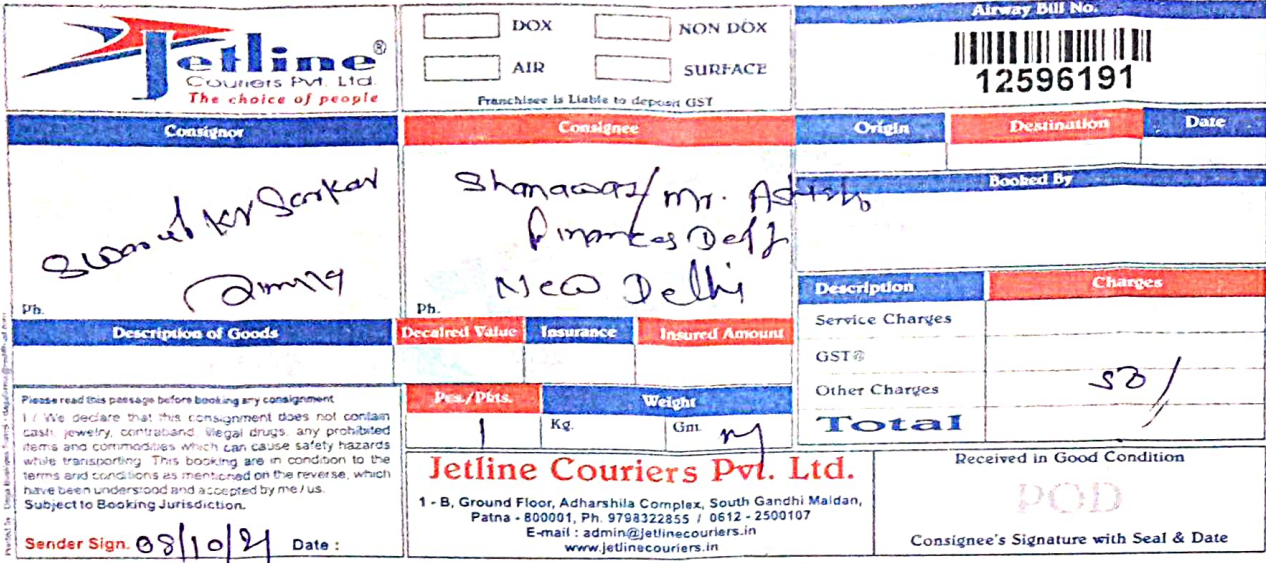 Jetline®
Couriers Pvt. Ltd.
The choice of people
DOX
NON DOX
AIR
SURFACE
Franchisee is Liable to deposit GST
Airway Bill No.
12596191
Consignor
Consignee
Origin
Destination
Date
Kr Sarkar
Ph.
Shanawaz/Mr. Ashish
Finances Deptt
New Delhi
Ph.
Booked By
Description
Charges
Service Charges
GST@
Other Charges
50/
Total
Description of Goods
Decalred Value
Insurance
Insured Amount
Pcs./Pkts.
Weight
1
Kg.
Gm.
Please read this passage before booking any consignment
I / We declare that this consignment does not contain
cash, jewelry, contraband, illegal drugs, any prohibited
items and commodities which can cause safety hazards
while transporting. This booking are in condition to the
terms and conditions as mentioned on the reverse, which
have been understood and accepted by me / us.
Subject to Booking Jurisdiction.
Sender Sign. 08/10/21 Date :
Jetline Couriers Pvt. Ltd.
1 - B, Ground Floor, Adharshila Complex, South Gandhi Maidan,
Patna - 800001, Ph. 9798322855 / 0612 - 2500107
E-mail : admin@jetlinecouriers.in
www.jetlinecouriers.in
Received in Good Condition
POD
Consignee's Signature with Seal & Date